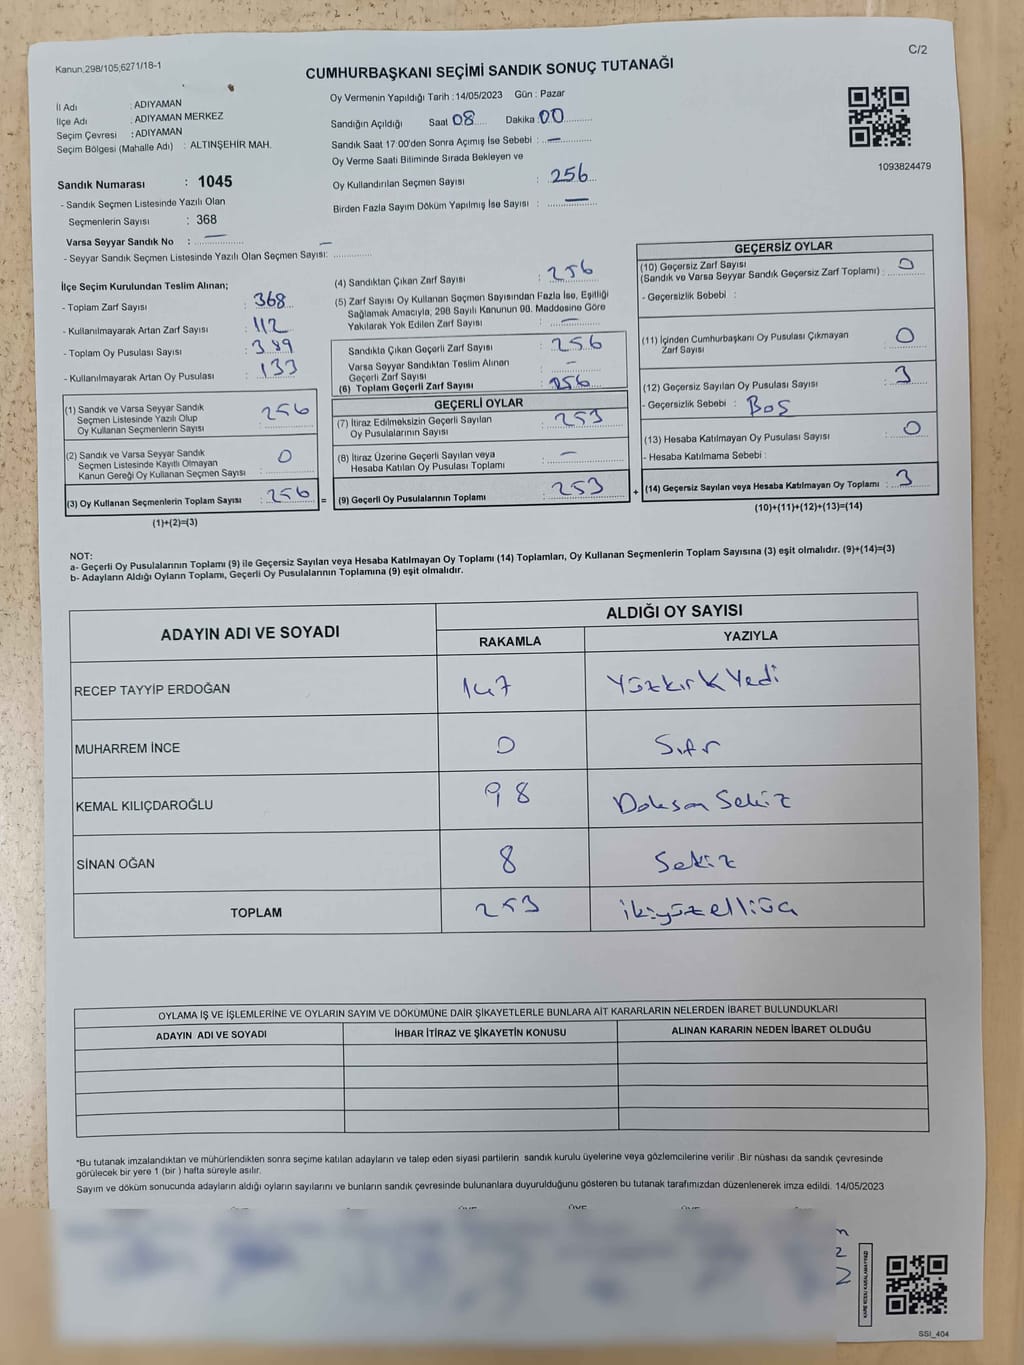 Kanun:298/105,6271/18-1
C/2
CUMHURBAŞKANI SEÇİMİ SANDIK SONUÇ TUTANAĞI
İl Adı : ADIYAMAN
İlçe Adı : ADIYAMAN MERKEZ
Seçim Çevresi : ADIYAMAN
Seçim Bölgesi (Mahalle Adı) : ALTINŞEHİR MAH.
Sandık Numarası : 1045
- Sandık Seçmen Listesinde Yazılı Olan
Seçmenlerin Sayısı : 368
Varsa Seyyar Sandık No : —
- Seyyar Sandık Seçmen Listesinde Yazılı Olan Seçmen Sayısı: —
Oy Vermenin Yapıldığı Tarih : 14/05/2023 Gün : Pazar
Sandığın Açıldığı Saat 08 Dakika 00
Sandık Saat 17:00'den Sonra Açımış İse Sebebi : —
Oy Verme Saati Biliminde Sırada Bekleyen ve
Oy Kullandırılan Seçmen Sayısı : 256
Birden Fazla Sayım Döküm Yapılmış İse Sayısı : —
1093824479
İlçe Seçim Kurulundan Teslim Alınan;
- Toplam Zarf Sayısı : 368
- Kullanılmayarak Artan Zarf Sayısı : 112
- Toplam Oy Pusulası Sayısı : 389
- Kullanılmayarak Artan Oy Pusulası : 133
(1) Sandık ve Varsa Seyyar Sandık
Seçmen Listesinde Yazılı Olup
Oy Kullanan Seçmenlerin Sayısı : 256
(2) Sandık ve Varsa Seyyar Sandık
Seçmen Listesinde Kayıtlı Olmayan
Kanun Gereği Oy Kullanan Seçmen Sayısı : 0
(3) Oy Kullanan Seçmenlerin Toplam Sayısı : 256 =
(1)+(2)=(3)
(4) Sandıktan Çıkan Zarf Sayısı : 256
(5) Zarf Sayısı Oy Kullanan Seçmen Sayısından Fazla İse, Eşitliği
Sağlamak Amacıyla, 298 Sayılı Kanunun 98. Maddesine Göre
Yakılarak Yok Edilen Zarf Sayısı : —
Sandıkta Çıkan Geçerli Zarf Sayısı : 256
Varsa Seyyar Sandıktan Teslim Alınan
Geçerli Zarf Sayısı : —
(6) Toplam Geçerli Zarf Sayısı : 256
GEÇERLİ OYLAR
(7) İtiraz Edilmeksizin Geçerli Sayılan
Oy Pusulalarının Sayısı : 253
(8) İtiraz Üzerine Geçerli Sayılan veya
Hesaba Katılan Oy Pusulası Toplamı : —
(9) Geçerli Oy Pusulalarının Toplamı : 253 +
GEÇERSİZ OYLAR
(10) Geçersiz Zarf Sayısı
(Sandık ve Varsa Seyyar Sandık Geçersiz Zarf Toplamı) : 0
- Geçersizlik Sebebi :
(11) İçinden Cumhurbaşkanı Oy Pusulası Çıkmayan
Zarf Sayısı : 0
(12) Geçersiz Sayılan Oy Pusulası Sayısı : 3
- Geçersizlik Sebebi : Boş
(13) Hesaba Katılmayan Oy Pusulası Sayısı : 0
- Hesaba Katılmama Sebebi :
(14) Geçersiz Sayılan veya Hesaba Katılmayan Oy Toplamı : 3
(10)+(11)+(12)+(13)=(14)
NOT:
a- Geçerli Oy Pusulalarının Toplamı (9) ile Geçersiz Sayılan veya Hesaba Katılmayan Oy Toplamı (14) Toplamları, Oy Kullanan Seçmenlerin Toplam Sayısına (3) eşit olmalıdır. (9)+(14)=(3)
b- Adayların Aldığı Oyların Toplamı, Geçerli Oy Pusulalarının Toplamına (9) eşit olmalıdır.
ADAYIN ADI VE SOYADI
ALDIĞI OY SAYISI
RAKAMLA YAZIYLA
RECEP TAYYİP ERDOĞAN 147 Yüzkırk Yedi
MUHARREM İNCE 0 Sıfır
KEMAL KILIÇDAROĞLU 98 Doksan Sekiz
SİNAN OĞAN 8 Sekiz
TOPLAM 253 ikiyüzelliüç
OYLAMA İŞ VE İŞLEMLERİNE VE OYLARIN SAYIM VE DÖKÜMÜNE DAİR ŞİKAYETLERLE BUNLARA AİT KARARLARIN NELERDEN İBARET BULUNDUKLARI
ADAYIN ADI VE SOYADI İHBAR İTİRAZ VE ŞİKAYETİN KONUSU ALINAN KARARIN NEDEN İBARET OLDUĞU
*Bu tutanak imzalandıktan ve mühürlendikten sonra seçime katılan adayların ve talep eden siyasi partilerin sandık kurulu üyelerine veya gözlemcilerine verilir .Bir nüshası da sandık çevresinde
görülecek bir yere 1 (bir ) hafta süreyle asılır.
Sayım ve döküm sonucunda adayların aldığı oyların sayılarını ve bunların sandık çevresinde bulunanlara duyurulduğunu gösteren bu tutanak tarafımızdan düzenlenerek imza edildi. 14/05/2023
SSI_404